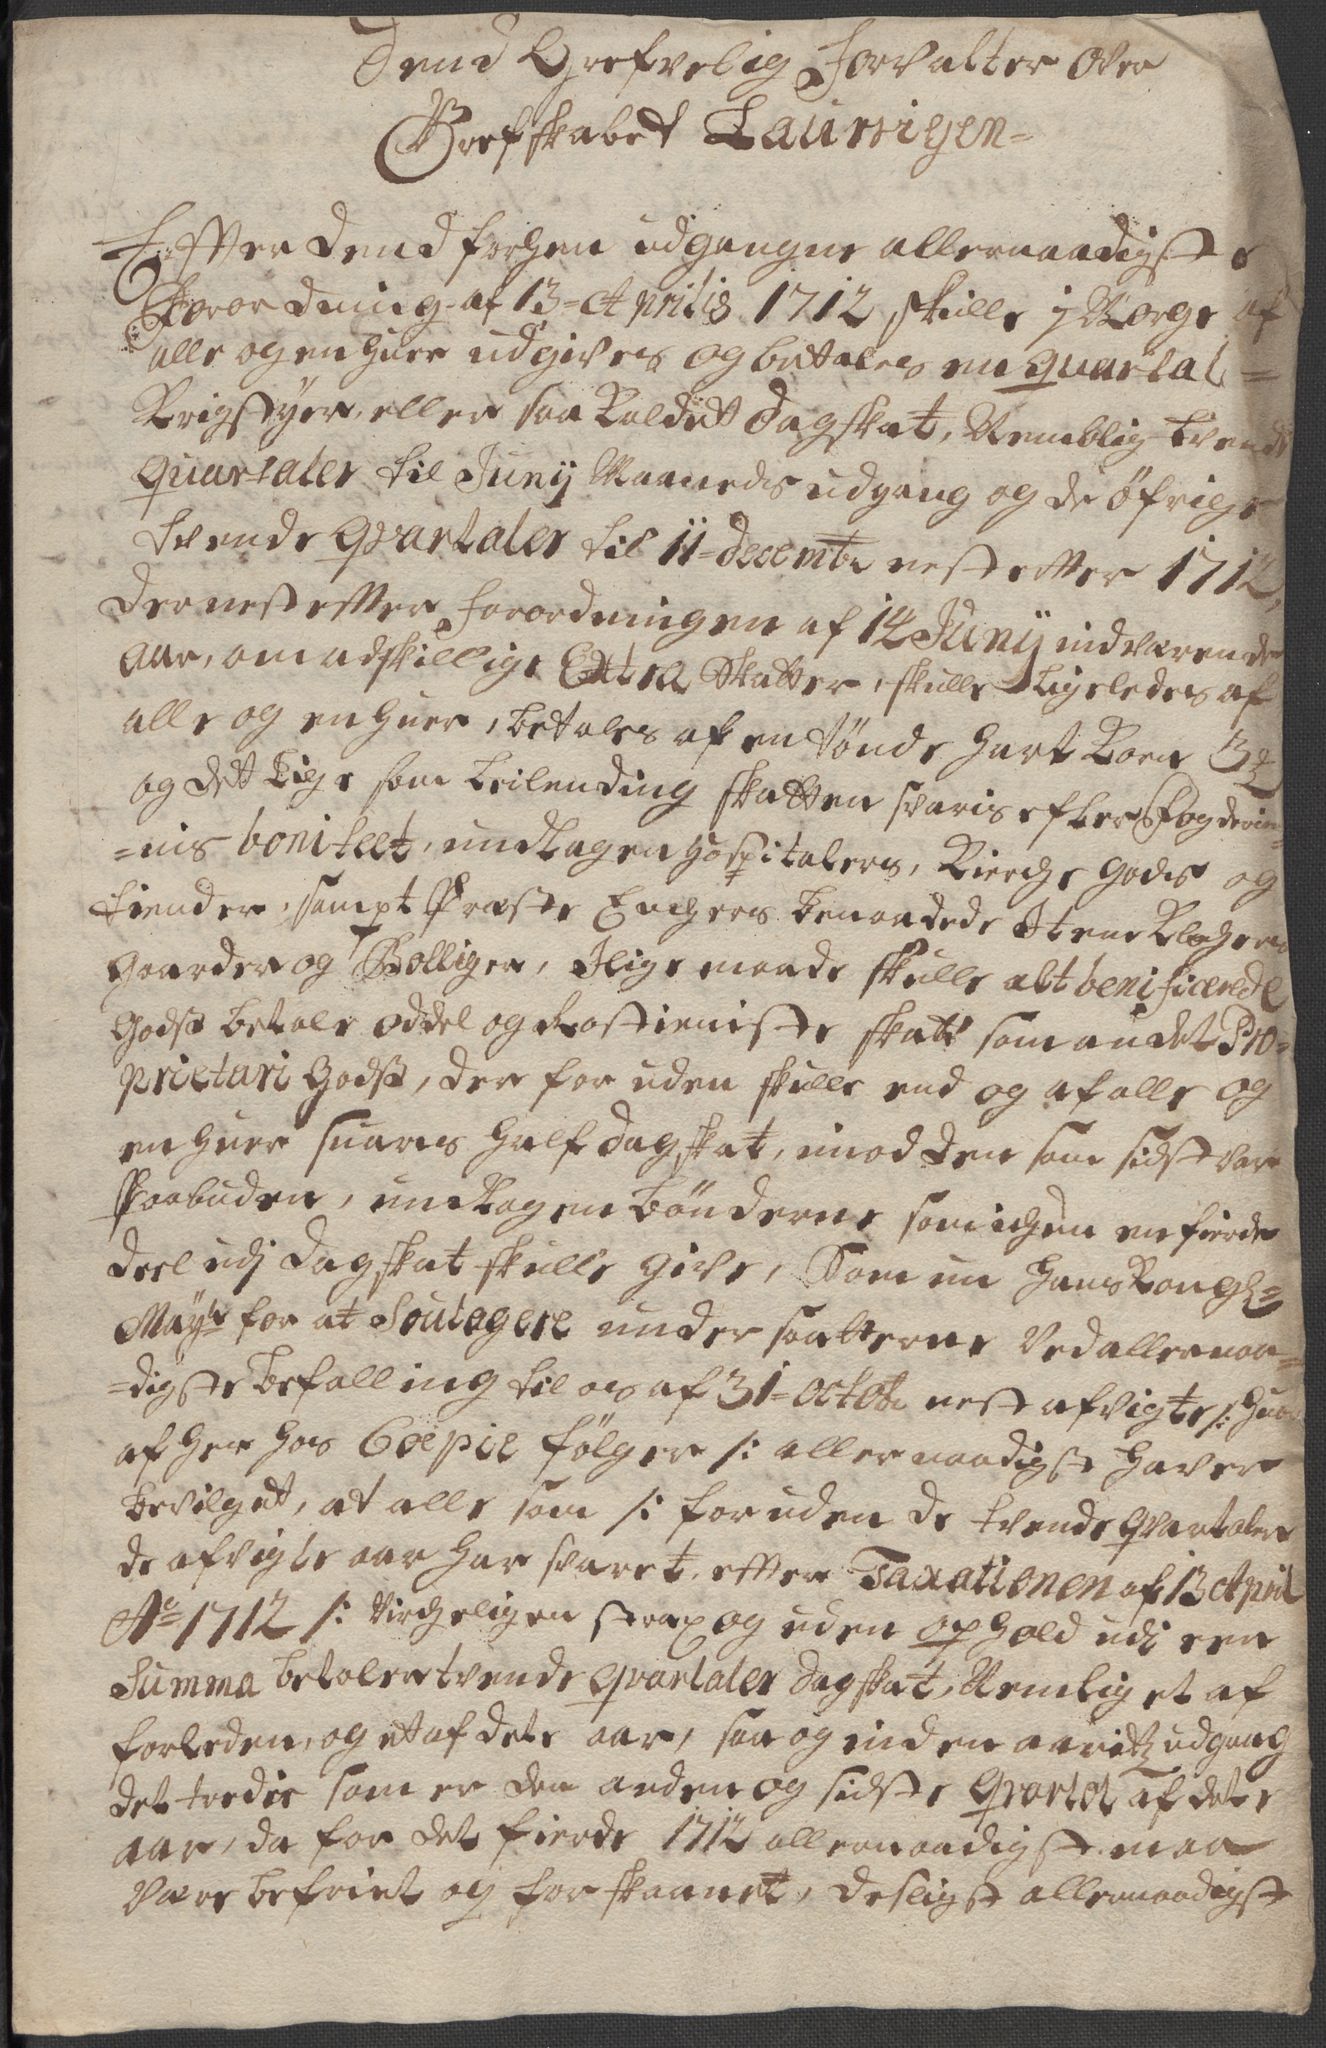 Dend Grefvelig Forvalter over
Grefskabet Laurvigen=
Effter dend forhen udgangne allernaadigste
Forordning af 13=Aprilis 1712 skulle j Norge af
alle og enhuer udgives og betales en quartal=
Krigstyer, eller saa kaldet dagskat, Nemblig tvende
quartaler til Junij Maaneds udgang og de öfrige
tvende Qvartaler til 11=decembr nest effter 1712,
dernest effter forordningen af 14 Junij indverende
aar, om adskillige Extra Skatter, skulle ligeledes af
alle og enhuer, betales af en tönde hart Korn
og det lige som Leilending skatten svaris efter Fogderier=
=nis boniteet, undtagen Hospitalers, Kierche gods og
tiender, sampt Præste Enchers benaadede
Gaarder og Bolliger, Jlige maade skulle alt benificerede
Gods betale oddel og Rostieniste skatt som andet Pro=
prietari Gods, der for uden skulle end og af alle og
enhuer suares half dagskat, imod den som sidst var
paabuden, undtagen bönderne som ichun en fierde
deel udj dagskat skulle give, Som nu hans Kongl=
May:ts for at Soulagere undersaatterne ved allernaa=
=digste befalling til os af 31=octobr nest afvigte /: huor
af her hos Coepie fölger /: allernaadigst haver
bevilget, at alle som /: foruden de tvende Qvartaler
de afvigte aar har svaret, effter Taxationen af 13 April
Ao 1712 /: virchelig en strax og uden ophold udj een
Summa betaler tvende Qvartaler dagskat, Nemlig et af
forleden, og et af dete aar, saa og inden aaritz udgang
det tredie som er den anden og sidste Qvartal af dete
aar, da for det fierde 1712 allernaadigst maa
være befriet og forskaanet, desligst allernaadigst